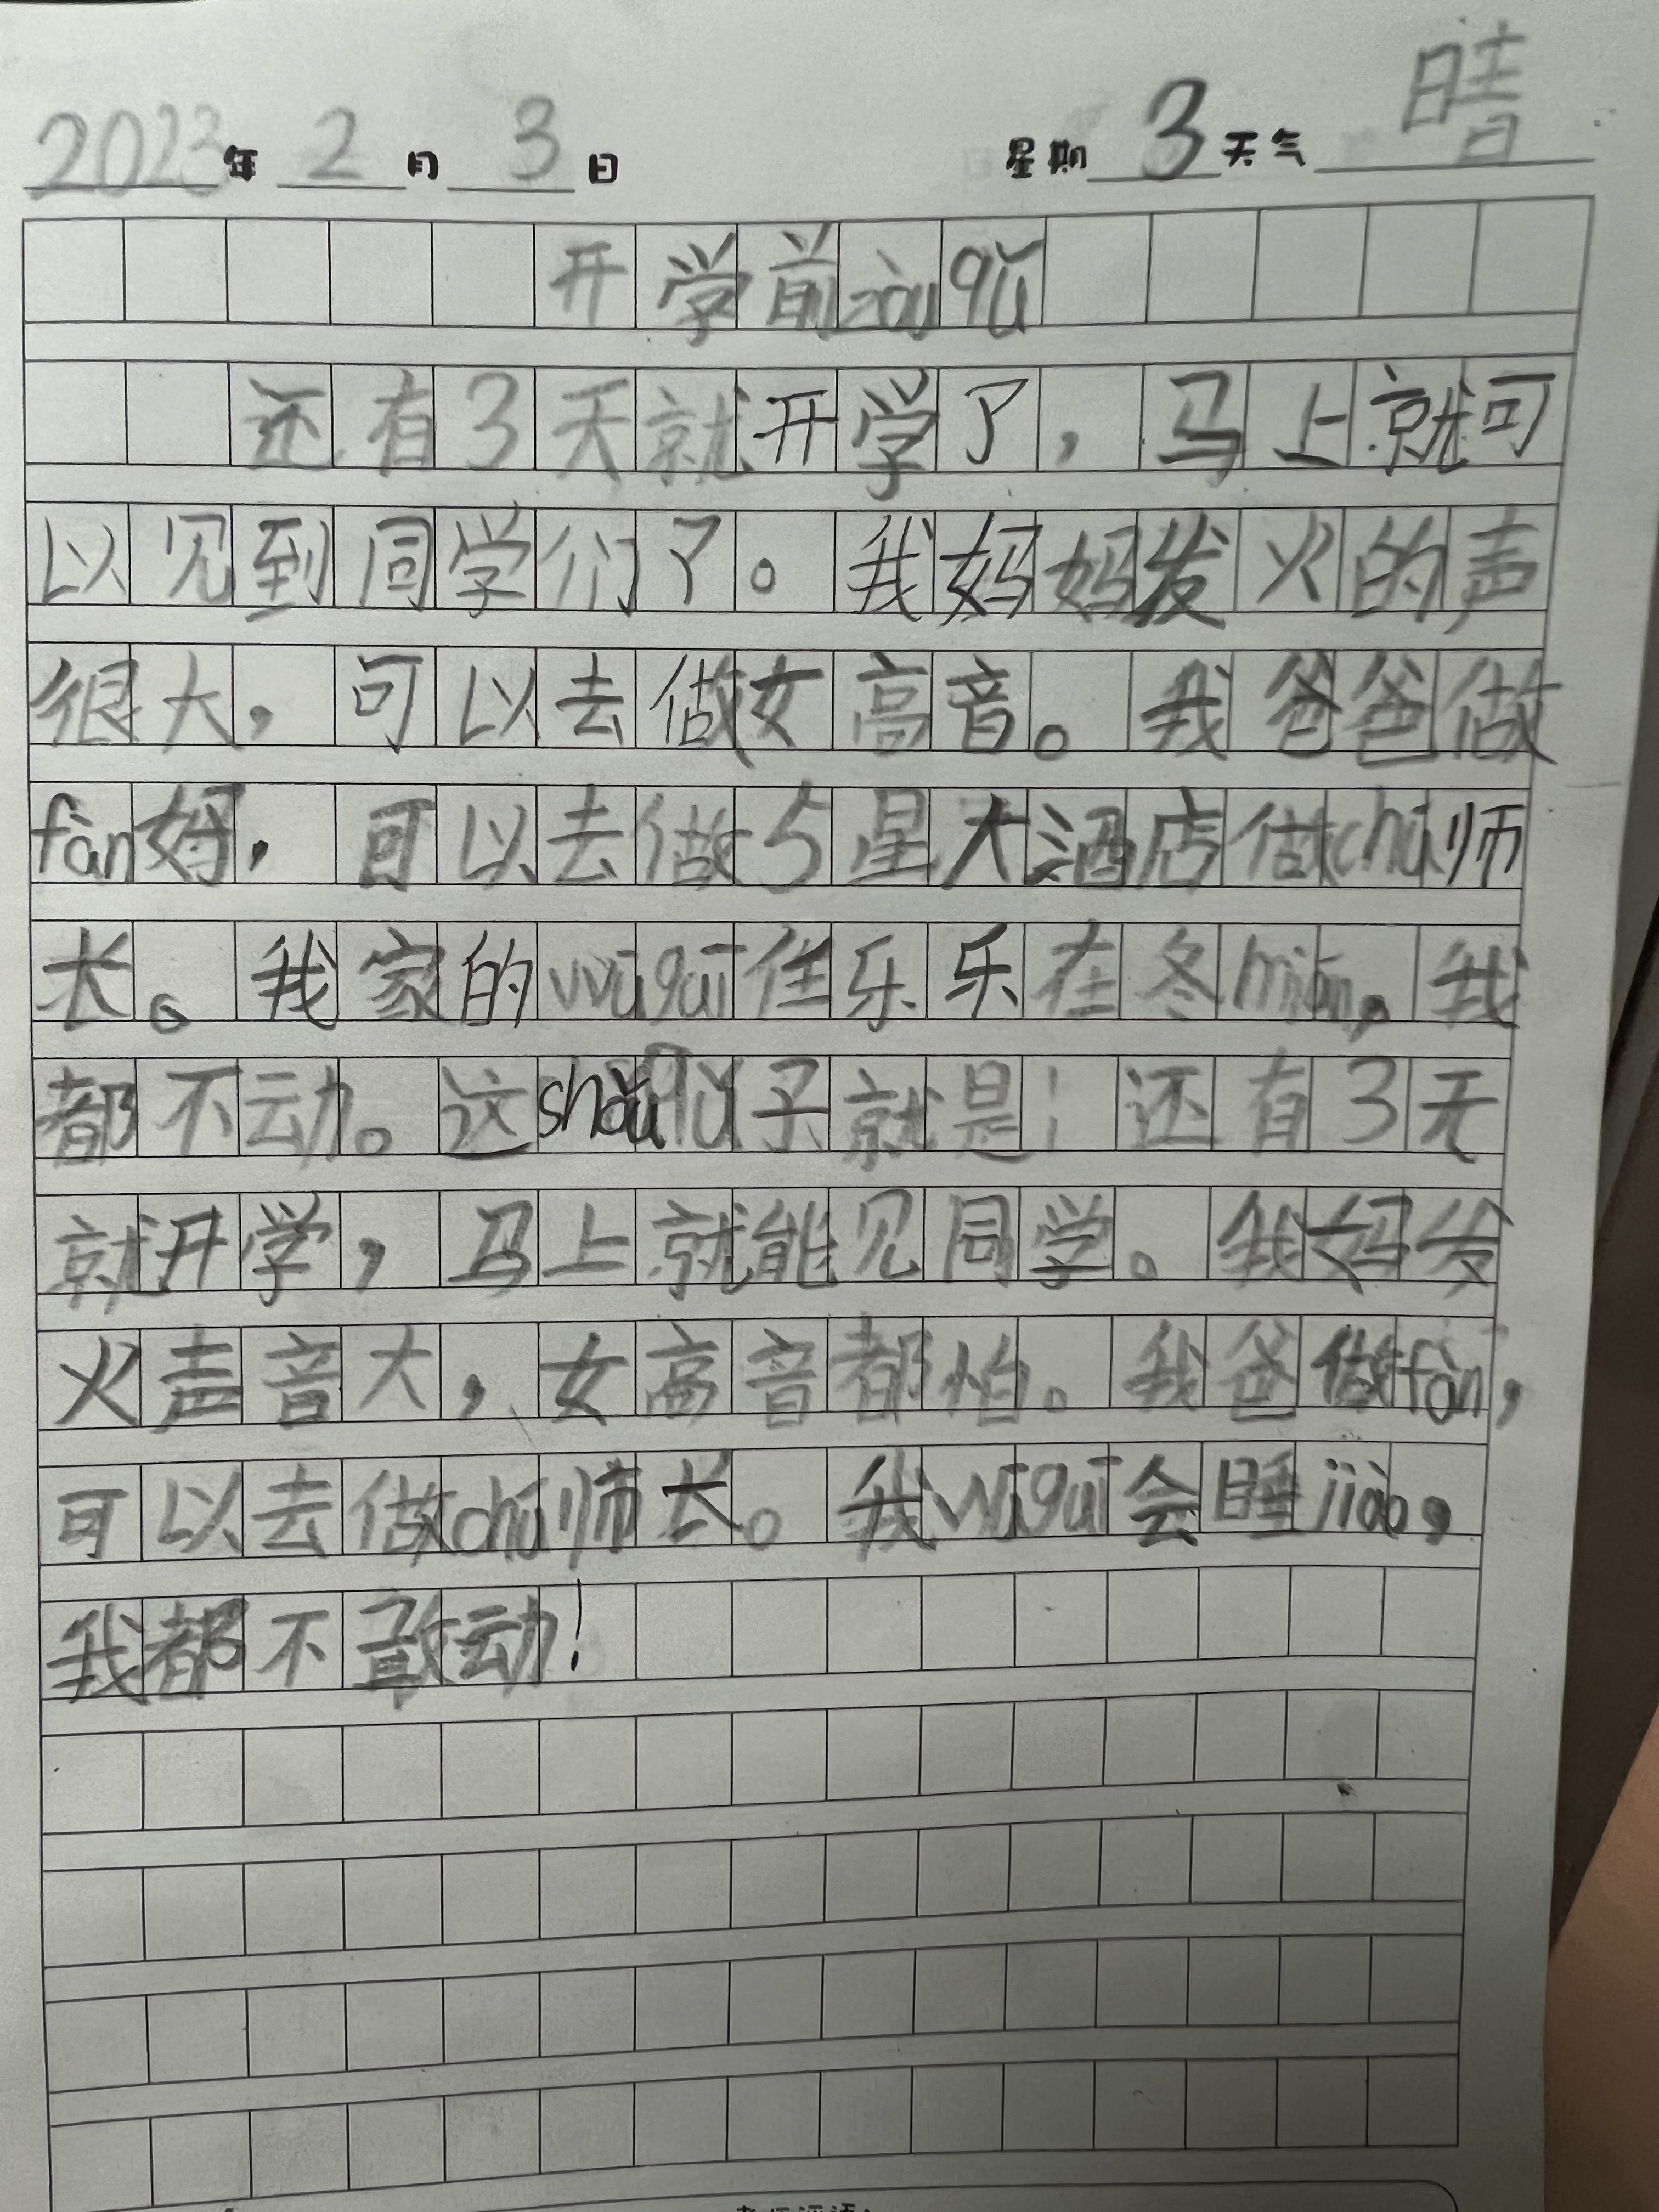 2023年 2 月 3 日 星期 3 天气 晴
开学前zòuqǔ
还有3天就开学了，马上就可
以见到同学们了。我妈妈发火的声
很大，可以去做女高音。我爸爸做
fàn好，可以去做5星大酒店做chú师
长。我家的wūguī佳乐乐在冬mián，我
都不动。这shǒuqǔ子就是！还有3天
就开学，马上就能见同学。我妈发
火声音大，女高音都怕。我爸做fàn，
可以去做chú师长。我wūguī会睡jiào，
我都不敢动！